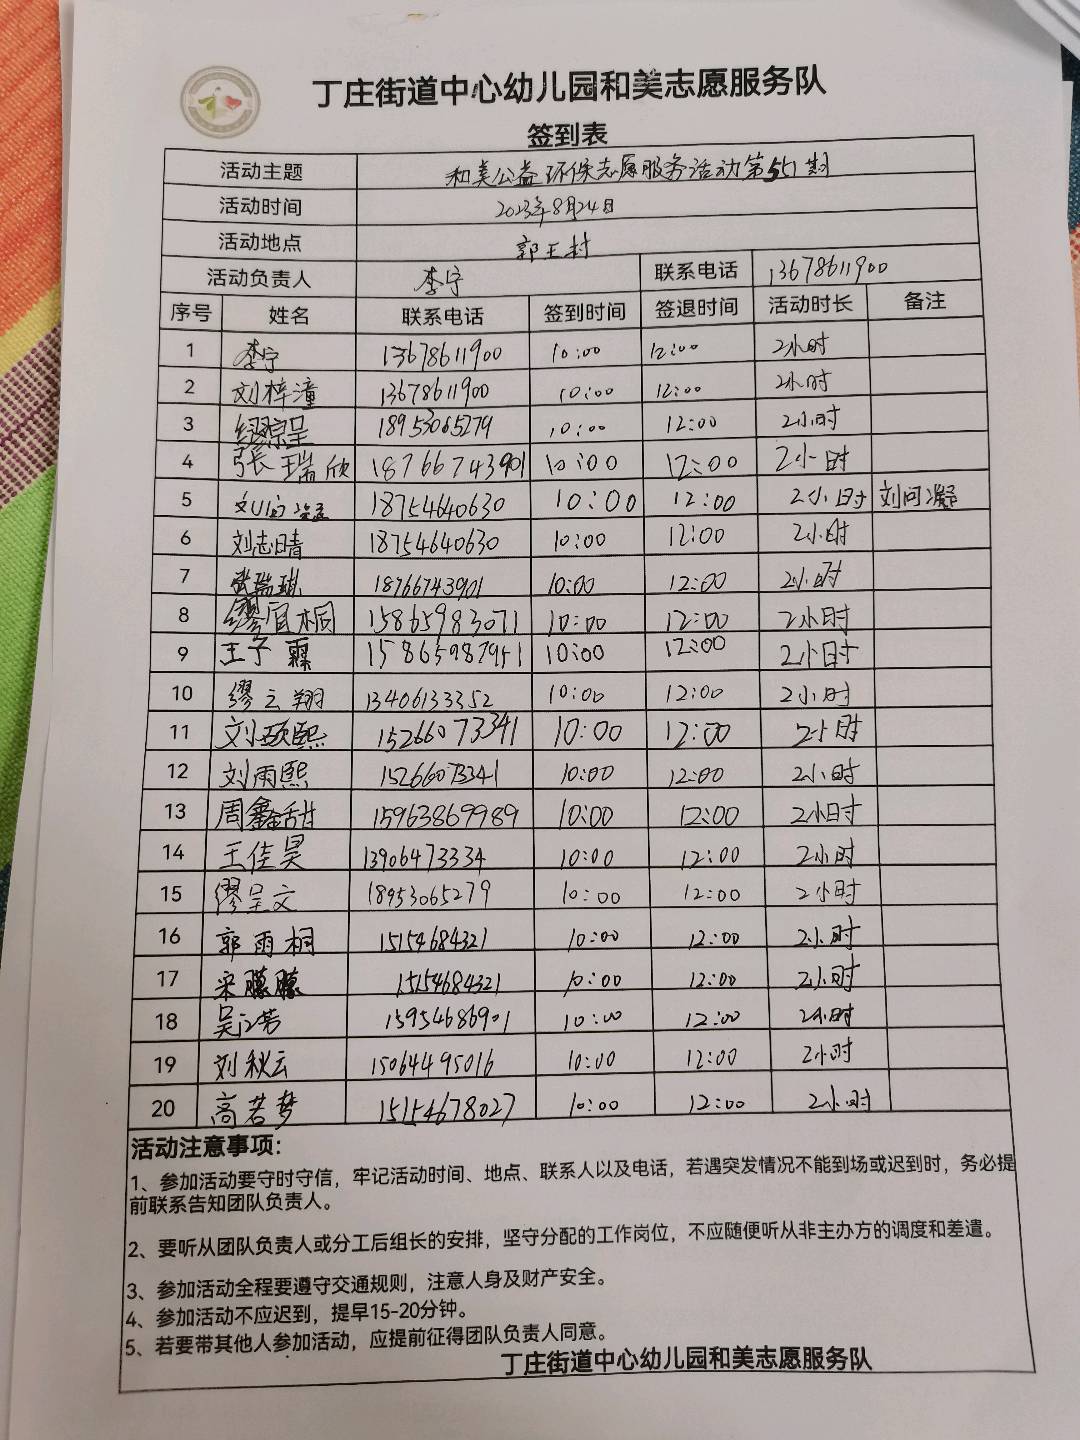 丁庄街道中心幼儿园和美志愿服务队
签到表
活动主题 和美公益环保志愿服务活动第551期
活动时间 2023年8月24日
活动地点 郭王村
活动负责人 李宁 联系电话 13678611900
序号 姓名 联系电话 签到时间 签退时间 活动时长 备注
1 李宁 13678611900 10:00 12:00 2小时
2 刘梓潼 13678611900 10:00 12:00 2小时
3 缪宗呈 18953065279 10:00 12:00 2小时
4 张瑞欣 18766743901 10:00 12:00 2小时
5 18754640630 10:00 12:00 2小时 刘问凝
6 刘志晴 18754640630 10:00 12:00 2小时
7 张瑞琳 18766743901 10:00 12:00 2小时
8 缪宜桐 15865983071 10:00 12:00 2小时
9 王子霖 15865987951 10:00 12:00 2小时
10 缪云翔 13406133352 10:00 12:00 2小时
11 刘硕熙 15266073341 10:00 12:00 2小时
12 刘雨熙 15266073341 10:00 12:00 2小时
13 周鑫甜 15963869989 10:00 12:00 2小时
14 王佳昊 13906473334 10:00 12:00 2小时
15 缪呈文 18953065279 10:00 12:00 2小时
16 郭雨桐 15154684321 10:00 12:00 2小时
17 宋朦朦 15154684321 10:00 12:00 2小时
18 吴江芳 15954686901 10:00 12:00 2小时
19 刘秋云 15064495016 10:00 12:00 2小时
20 高若梦 15154678027 10:00 12:00 2小时
活动注意事项：
1、参加活动要守时守信，牢记活动时间、地点、联系人以及电话，若遇突发情况不能到场或迟到时，务必提
前联系告知团队负责人。
2、要听从团队负责人或分工后组长的安排，坚守分配的工作岗位，不应随便听从非主办方的调度和差遣。
3、参加活动全程要遵守交通规则，注意人身及财产安全。
4、参加活动不应迟到，提早15-20分钟。
5、若要带其他人参加活动，应提前征得团队负责人同意。
丁庄街道中心幼儿园和美志愿服务队